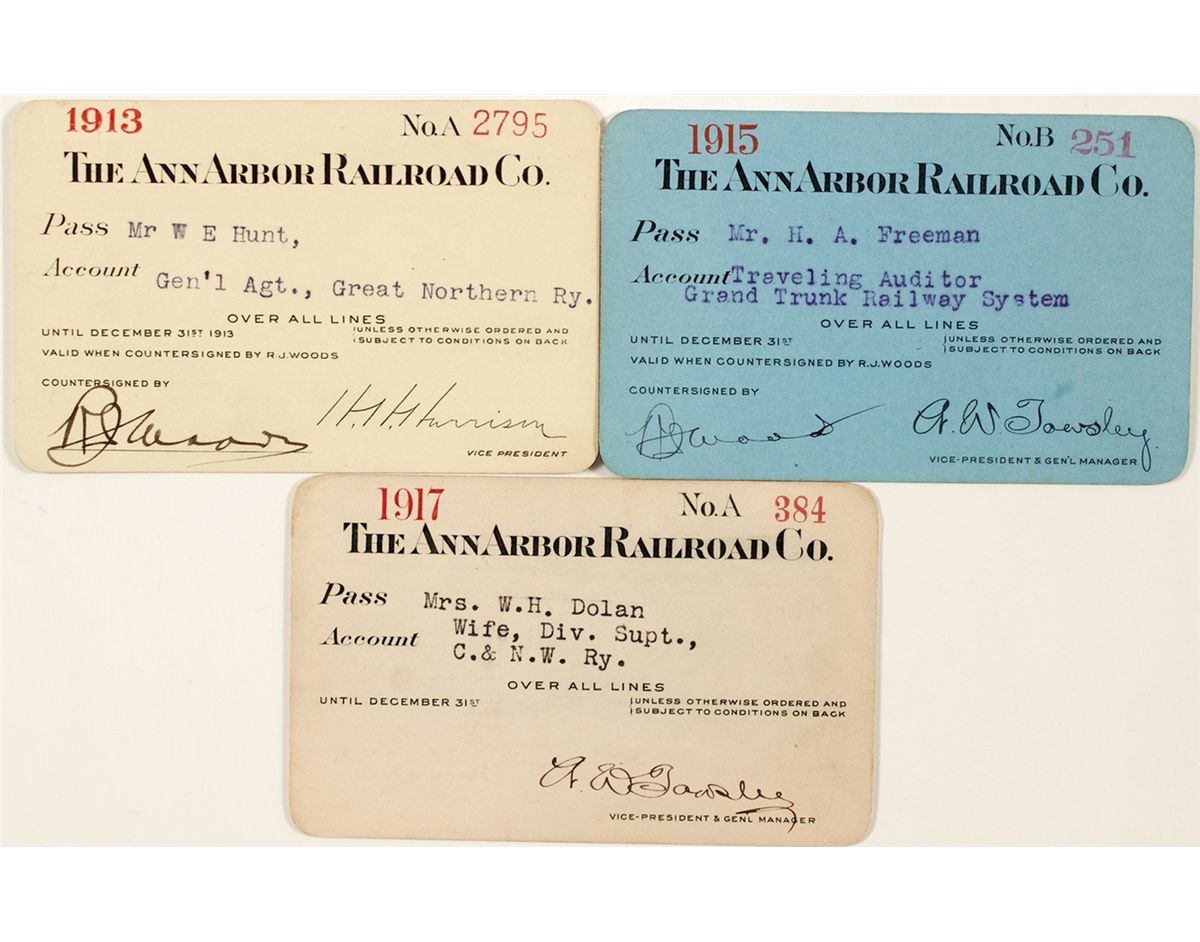 1913 No. A 2795
THE ANN ARBOR RAILROAD CO.
Pass Mr W E Hunt,
Account Gen'l Agt., Great Northern Ry.
OVER ALL LINES
UNTIL DECEMBER 31ST 1913
UNLESS OTHERWISE ORDERED AND
SUBJECT TO CONDITIONS ON BACK
VALID WHEN COUNTERSIGNED BY R.J.WOODS
COUNTERSIGNED BY
RJWoods
H.H.Harrison
VICE PRESIDENT
1915 No. B 251
THE ANN ARBOR RAILROAD CO.
Pass Mr. H. A. Freeman
Account Traveling Auditor
Grand Trunk Railway System
OVER ALL LINES
UNTIL DECEMBER 31ST
UNLESS OTHERWISE ORDERED AND
SUBJECT TO CONDITIONS ON BACK
VALID WHEN COUNTERSIGNED BY R.J.WOODS
COUNTERSIGNED BY
RJWoods
A.W.Towsley.
VICE-PRESIDENT & GEN'L MANAGER
1917 No. A 384
THE ANN ARBOR RAILROAD CO.
Pass Mrs. W.H. Dolan
Account Wife, Div. Supt.,
C.& N.W. Ry.
OVER ALL LINES
UNTIL DECEMBER 31ST
UNLESS OTHERWISE ORDERED AND
SUBJECT TO CONDITIONS ON BACK
A.W.Towsley
VICE-PRESIDENT & GEN'L MANAGER